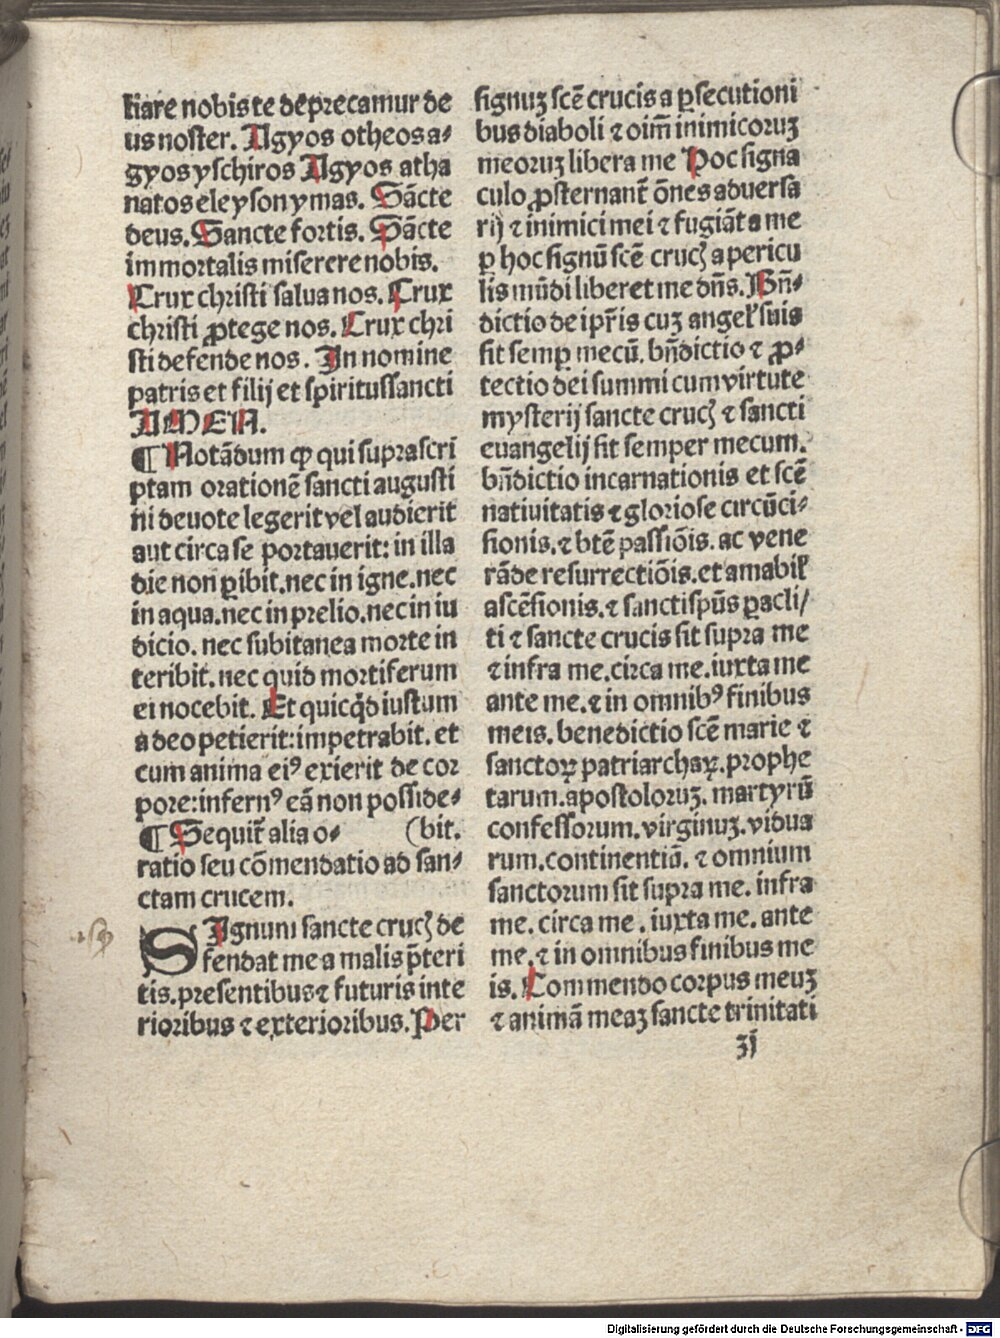 liare nobis te deprecamur de
us noster. Agyos otheos a⸗
gyos yschiros Agyos atha
natos eleyson ymas. Sācte
deus. Sancte fortis. Sācte
immortalis miserere nobis.
Crux christi salua nos. Crux
christi ꝓtege nos. Crux chri
sti defende nos. In nomine
patris et filij et spiritussancti
AMEN.
¶ Notādum ꝙ qui suprascri
ptam orationē sancti augusti
ni deuote legerit vel audierit
aut circa se portauerit: in illa
die non ꝑibit. nec in igne. nec
in aqua. nec in prelio. nec in iu
dicio. nec subitanea morte in
teribit. nec quid mortiferum
ei nocebit. Et quicq̄d iustum
a deo petierit: impetrabit. et
cum anima eiꝰ exierit de cor
pore: infernꝰ eā non posside⸗
¶ Sequit̄ alia o⸗ (bit.
ratio seu cōmendatio ad san⸗
ctam crucem.
SIgnum sancte crucꝭ de
fendat me a malis p̄teri
tis. presentibus ⁊ futuris inte
rioribus ⁊ exterioribus. Per
signuꝫ scē crucis a ꝑsecutioni
bus diaboli ⁊ oim̄ inimicoruꝫ
meoruꝫ libera me Hoc signa
culo ꝓsternant̄ ōnes aduersa
rij ⁊ inimici mei ⁊ fugiāt a me
ꝑ hoc signū scē crucꝭ a pericu
lis mūdi liberet me dn̄s. Bn̄⸗
dictio dei pr̄is cuꝫ angel̓ suis
sit semꝑ mecū. bn̄dictio ⁊ ꝓ⸗
tectio dei summi cum virtute
mysterij sancte crucꝭ ⁊ sancti
euangelij sit semper mecum.
bn̄dictio incarnationis et scē
natiuitatis ⁊ gloriose circūci⸗
sionis. ⁊ btē passiōis. ac vene
rāde resurrectiōis. et amabil̓
ascēsionis. ⁊ sancti sp̄us ꝑacli/
ti ⁊ sancte crucis sit supra me
⁊ infra me. circa me. iuxta me
ante me. ⁊ in omnibꝰ finibus
meis. benedictio scē marie ⁊
sanctoꝝ patriarchaꝝ. prophe
tarum. apostoloruꝫ. martyrū
confessorum. virginuꝫ. vidua
rum. continentiū. ⁊ omnium
sanctorum sit supra me. infra
me. circa me. iuxta me. ante
me. ⁊ in omnibus finibus me
is. Commendo corpus meuꝫ
⁊ animā meaꝫ sancte trinitati
Digitalisierung gefördert durch die Deutsche Forschungsgemeinschaft - DFG